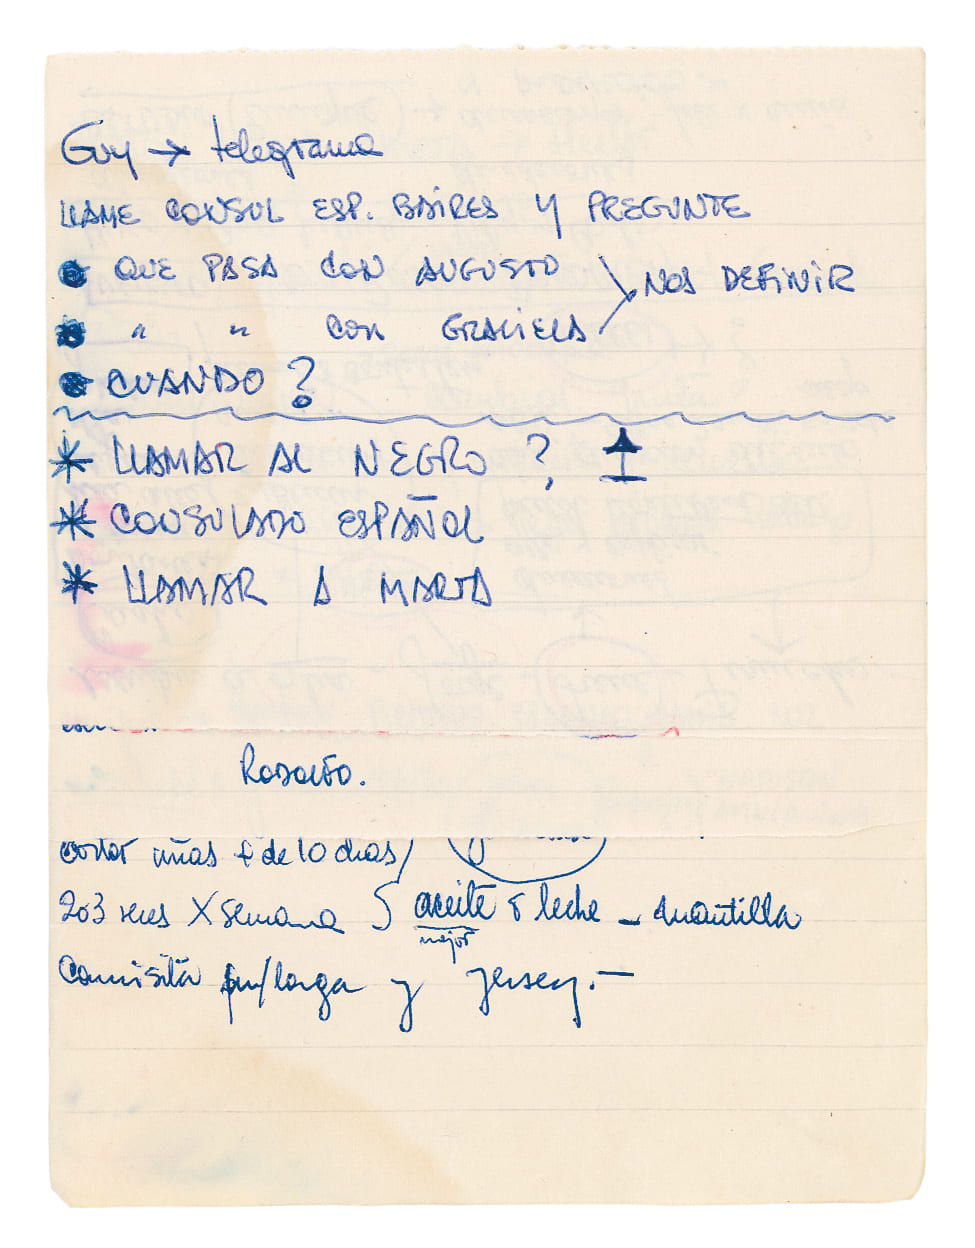 Guy → telegrama
LLAME CONSUL ESP. BAIRES Y PREGUNTE
• QUE PASA CON AUGUSTO
• " " CON GRACIELA
NOS DEFINIR
• CUANDO?
* LLAMAR AL NEGRO?
* CONSULADO ESPAÑOL
* LLAMAR A MARTA
Rosario.
cortar uñas + de 10 dias
2 o 3 veces X semana aceite o leche – mantilla
mejor
Camisita m/larga y jersey. –